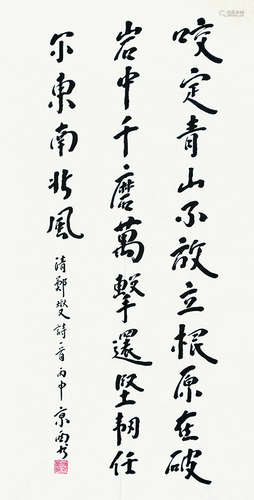 咬定青山不放立根原在破
岩中千磨萬擊還堅韌任
尔東南北風
清鄭燮詩一首丙申京西书